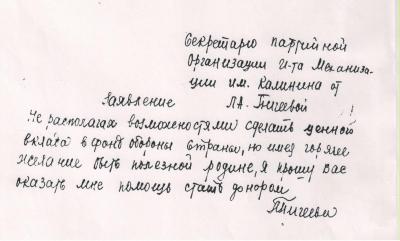 Секретарю партийной
организации И-та Механиза-
ции им. Калинина от
Заявление Л.А. Пигеевой
Не располагая возможностями сделать ценной
вклад в фонд обороны страны, но имея горячее
желание быть полезной родине, я прошу Вас
оказать мне помощь стать донором